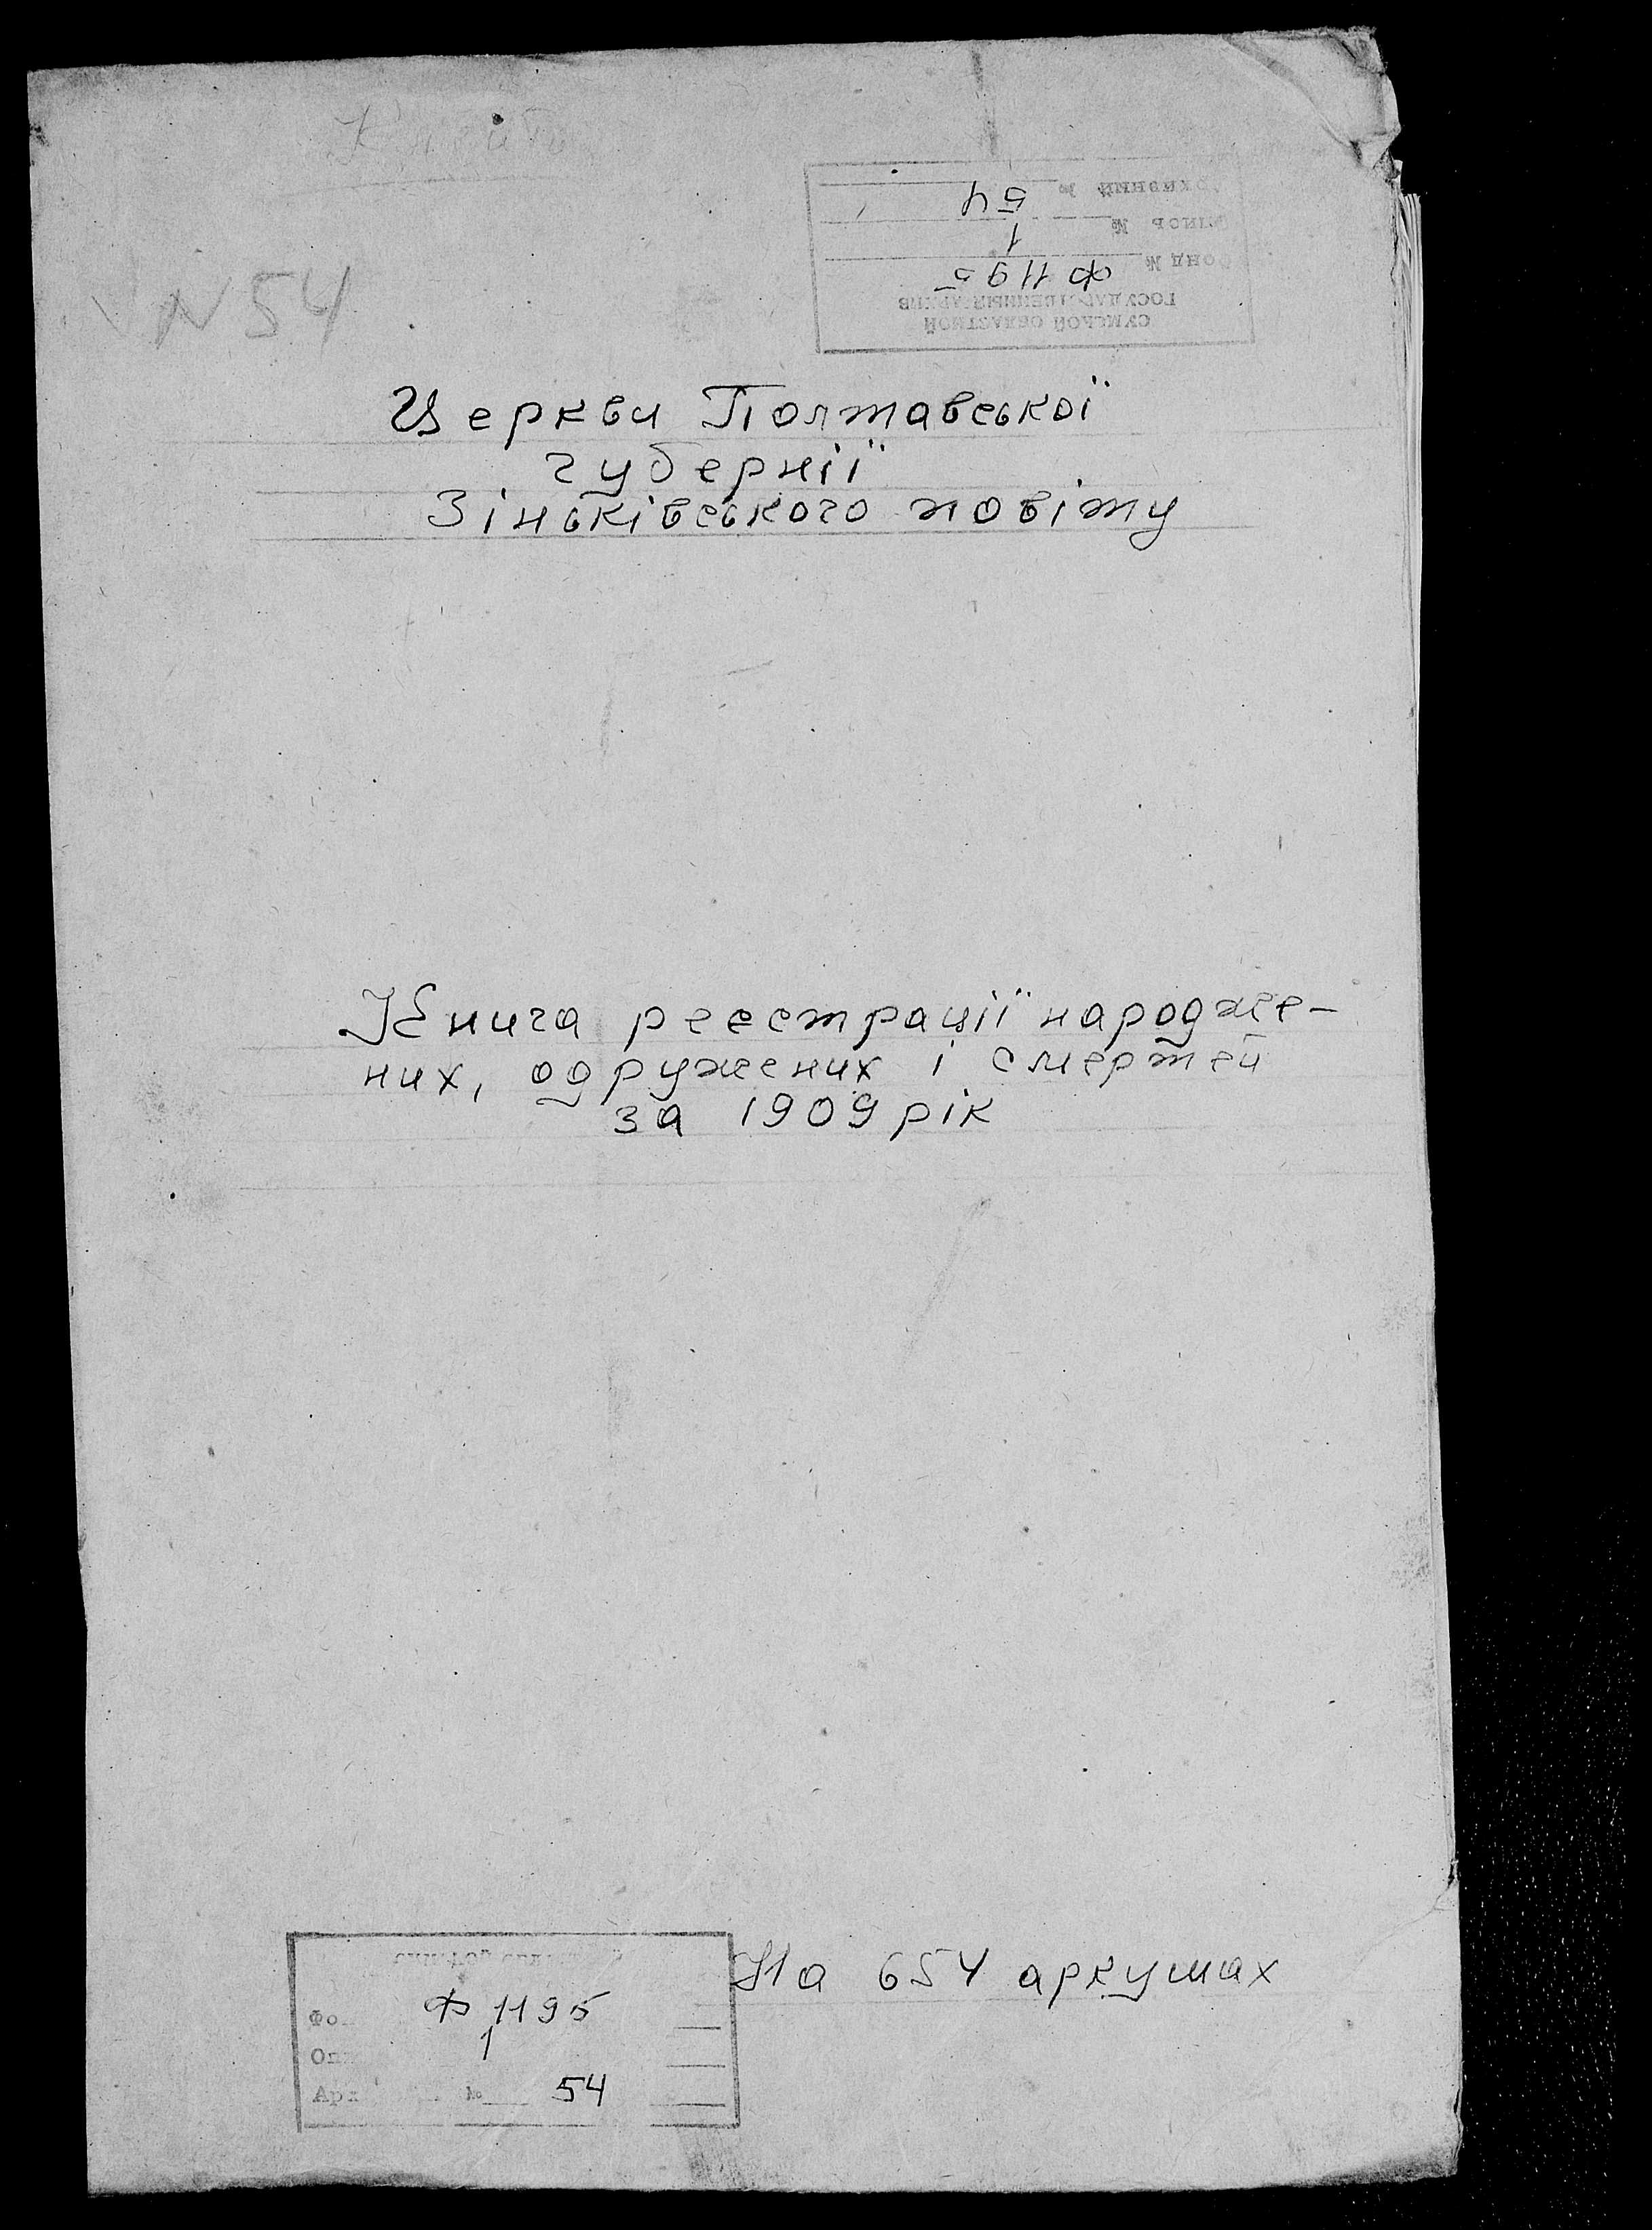 N 54
СУМСКОЙ ОБЛАСТНОЙ
ГОСУДАРСТВЕННЫЙ АРХИВ
Фонд № Ф 1195
Опись № 1
Архивный № 54
Церкви Полтавської
губернії
Зіньківського повіту
Книга реєстрації народже-
них, одружених і смертей
за 1909 рік
На 654 аркушах
Фо Ф 1195
Оп 1
Арх № 54